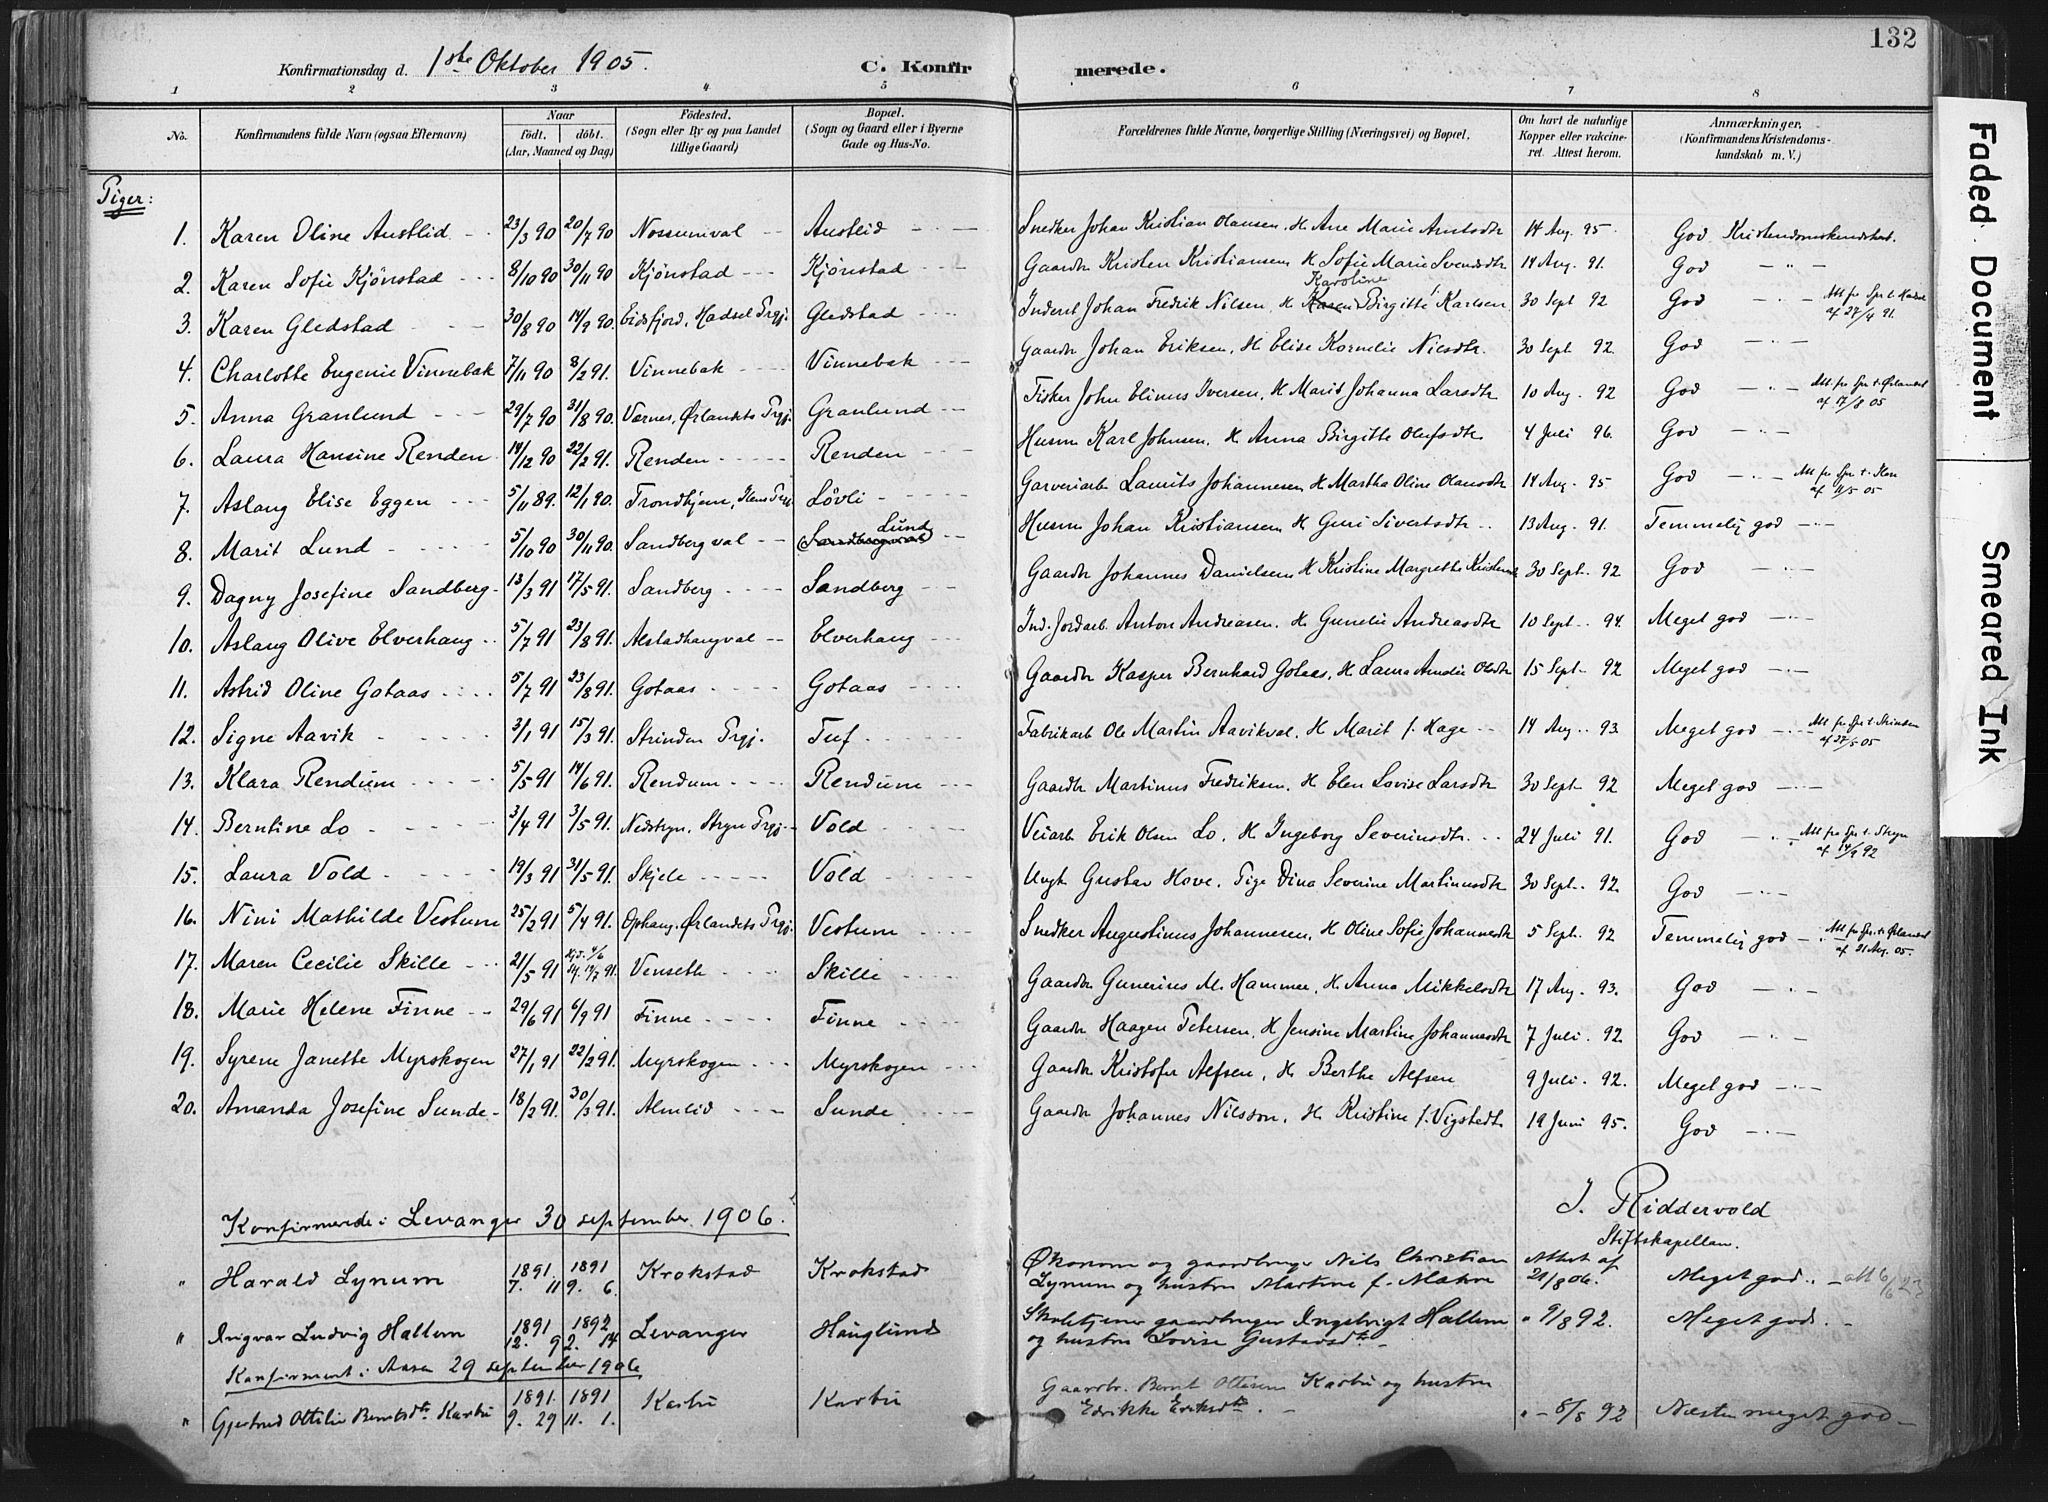 132
Konfirmationsdag d. 1ste Oktober 1905.
C. Konfirmerede.
1 2 3 4 5 6 7 8
No. Konfirmandens fulde Navn (ogsaa Efternavn) Naar født. døbt. (Aar, Maaned og Dag) Fødested. (Sogn eller By og paa Landet tillige Gaard) Bopæl. (Sogn og Gaard eller i Byerne Gade og Hus-No. Forældrenes fulde Navne, borgerlige Stilling (Næringsvei) og Bopæl. Om havt de naturlige Kopper eller vakcineret. Attest herom. Anmærkninger, (Konfirmandens Kristendomskundskab m. V.)
Piger:
1. Karen Oline Austlid 23/3 90 20/7 90 Nossumval Austlid Snedker Johan Kristian Olausen, H. Ane Marie 14 Aug. 95. God Kristendomskundskab.
2. Karen Sofie Kjönstad 8/10 90 30/11 90 Kjönstad Kjönstad Gaardbr Kristen Kristiansen H. Sofie Marie Svendsdtr 14 Aug. 91. God — " —
3. Karen Gledstad 30/8 90 14/9 90. Eidsfjord, Hadsel Prgj. Gledstad Inderst Johan Fredrik Nilsen, H. Karoline Birgitte Karlsen 30 Sept 92 God — " — Att fr Spr t. Hadsel af 27/4 91.
4. Charlotte Eugenie Vinnebak 7/11 90 8/2 91. Vinnebak Vinnebak Gaardbr Johan Eriksen, H. Elise Kornelie Nilsdtr. 30 Sept. 92. God — " —
5. Anna Granlund 29/7 90 31/8 90. Værnes, Ørlandets Prgj. Granlund Fisker John Elinus Iversen, H. Marit Johanna Larsdtr 10 Aug. 92 God — " — Att fr Spr t Ørlandet af 17/8 05
6. Laura Hansine Renden 14/12 90 22/2 91. Renden Renden Husm Karl Johnsen, H. Anna Birgitte Olufsdtr 4 Juli 96. God — " —
7. Aslaug Elise Eggen 5/11 89. 12/1 90. Trondhjem, Løvli Garveriarb Laurits Johannesen H. Martha Oline Olausdtr 14 Aug. 95. God — " —
8. Marit Lund 5/10 90 30/11 90. Sandbergval Lund Husm Johan Kristiansen H. Guri Sivertsdtr 13 Aug. 91. Temmelig god — " —
9. Dagny Josefine Sandberg 13/3 91 17/5 91. Sandberg Sandberg Gaardbr Johannes Danielsen H. Kristine Margrethe 30 Sept. 92 God — " —
10. Aslaug Olive Elverhaug 5/7 91 23/8 91. Alstadhaugval Elverhaug Ind. Jordarb. Anton Andreasen, H. Gunelie Andreasdtr 10 Sept. 94. Meget god — " —
11. Astrid Oline Gotaas 5/7 91 23/8 91. Gotaas Gotaas Gaardbr Kasper Bernhard Gotaas, H. Laura Amalie Olsdtr 15 Sept. 92 Meget god — " —
12. Signe Aavik 3/1 91 15/3 91. Strinden Prgj. Tuf Fabrikarb Ole Martin Aavikval, H. Marit f. Hage 14 Aug. 93. Meget god — " — Att fr Spr t Strinden af 27/5 05
13. Klara Rendum 5/5 91 14/6 91. Rendum Rendum Gaardbr Martinus Fredriksen, H. Elen Lovise Larsdtr 30 Sept. 92 Meget god — " —
14. Berntine Lo 3/4 91 3/5 91. Nedstryn, Stryn Prgj. Vold Veiarb Erik Olsen Lo, H. Ingeborg Severinsdtr. 24 Juli 91. God — " — Att fra Spr t. Stryn af 14/9 92
15. Laura Vold 19/3 91 31/5 91. Skjele Vold Ungk Gustav Hove, Pige Dina Severine Martinusdtr 30 Sept. 92. God — " —
16. Nini Mathilde Vestum 25/2 91 5/4 91. Ophaug, Ørlandets Prgj. Vestum Snedker Augustinus Johannesen, H. Oline Sofie Johannesdtr 5 Sept. 92 Temmelig god — " — Att fr Spr t Ørlandet af 21 Aug. 05.
17. Maren Cecilie Skille 21/5 91 Hj. 4/6 St. 12/7 91. Venseth Skille Gaardbr Gunerius M. Hammer, H. Anna Mikkelsdtr 17 Aug. 93. God — " —
18. Marie Helene Finne 29/6 91 6/9 91 Finne Finne Gaardbr Haagen Petersen, H. Jensine Martine Johannesdtr 7 Juli. 92. God — " —
19. Syrene Janette Myrskogen 27/1 91 22/2 91. Myrskogen Myrskogen Gaardbr Kristofer Alfsen, H. Berthe Alfsen 9 Juli. 92. Meget god — " —
20. Amanda Josefine Sunde 18/2 91. 30/3 91. Almlid Sunde Gaardbr Johannes Nilsson, H. Kristine f. Vigstedt 19 Juni 95. God — " —
J. Riddervold
Stiftskapellan.
Konfirmerede i Levanger 30 september 1906.
" Harald Lynum 1891 7. 11 1891 9. 6. Krokstad Krokstad Økonom og gaardbruger Nils Christian Lynum og hustru Martine f. Mæhre Attest af 21/8 06. Meget god. — att 6/6 23
" Ingvar Ludvig Hallem 1891 12. 9 1892 2. 14 Levanger Hauglund Skoletjener gaardbruger Ingebrigt Hallem og hustru Lovise Gustavsdtr. " 9/8 92. Meget god. —
Konfirmeret i Aasen 29 september 1906
" Gjertrud Ottilie Berntsdtr Karbu 1891 9. 29 1891 11. 1. Karbu Karbu Gaardbr. Bernt Ottesen Karbu og hustru Edrikke Eriksdtr. " — 8/8 92 Næsten meget god —
Faded Document
Smeared Ink